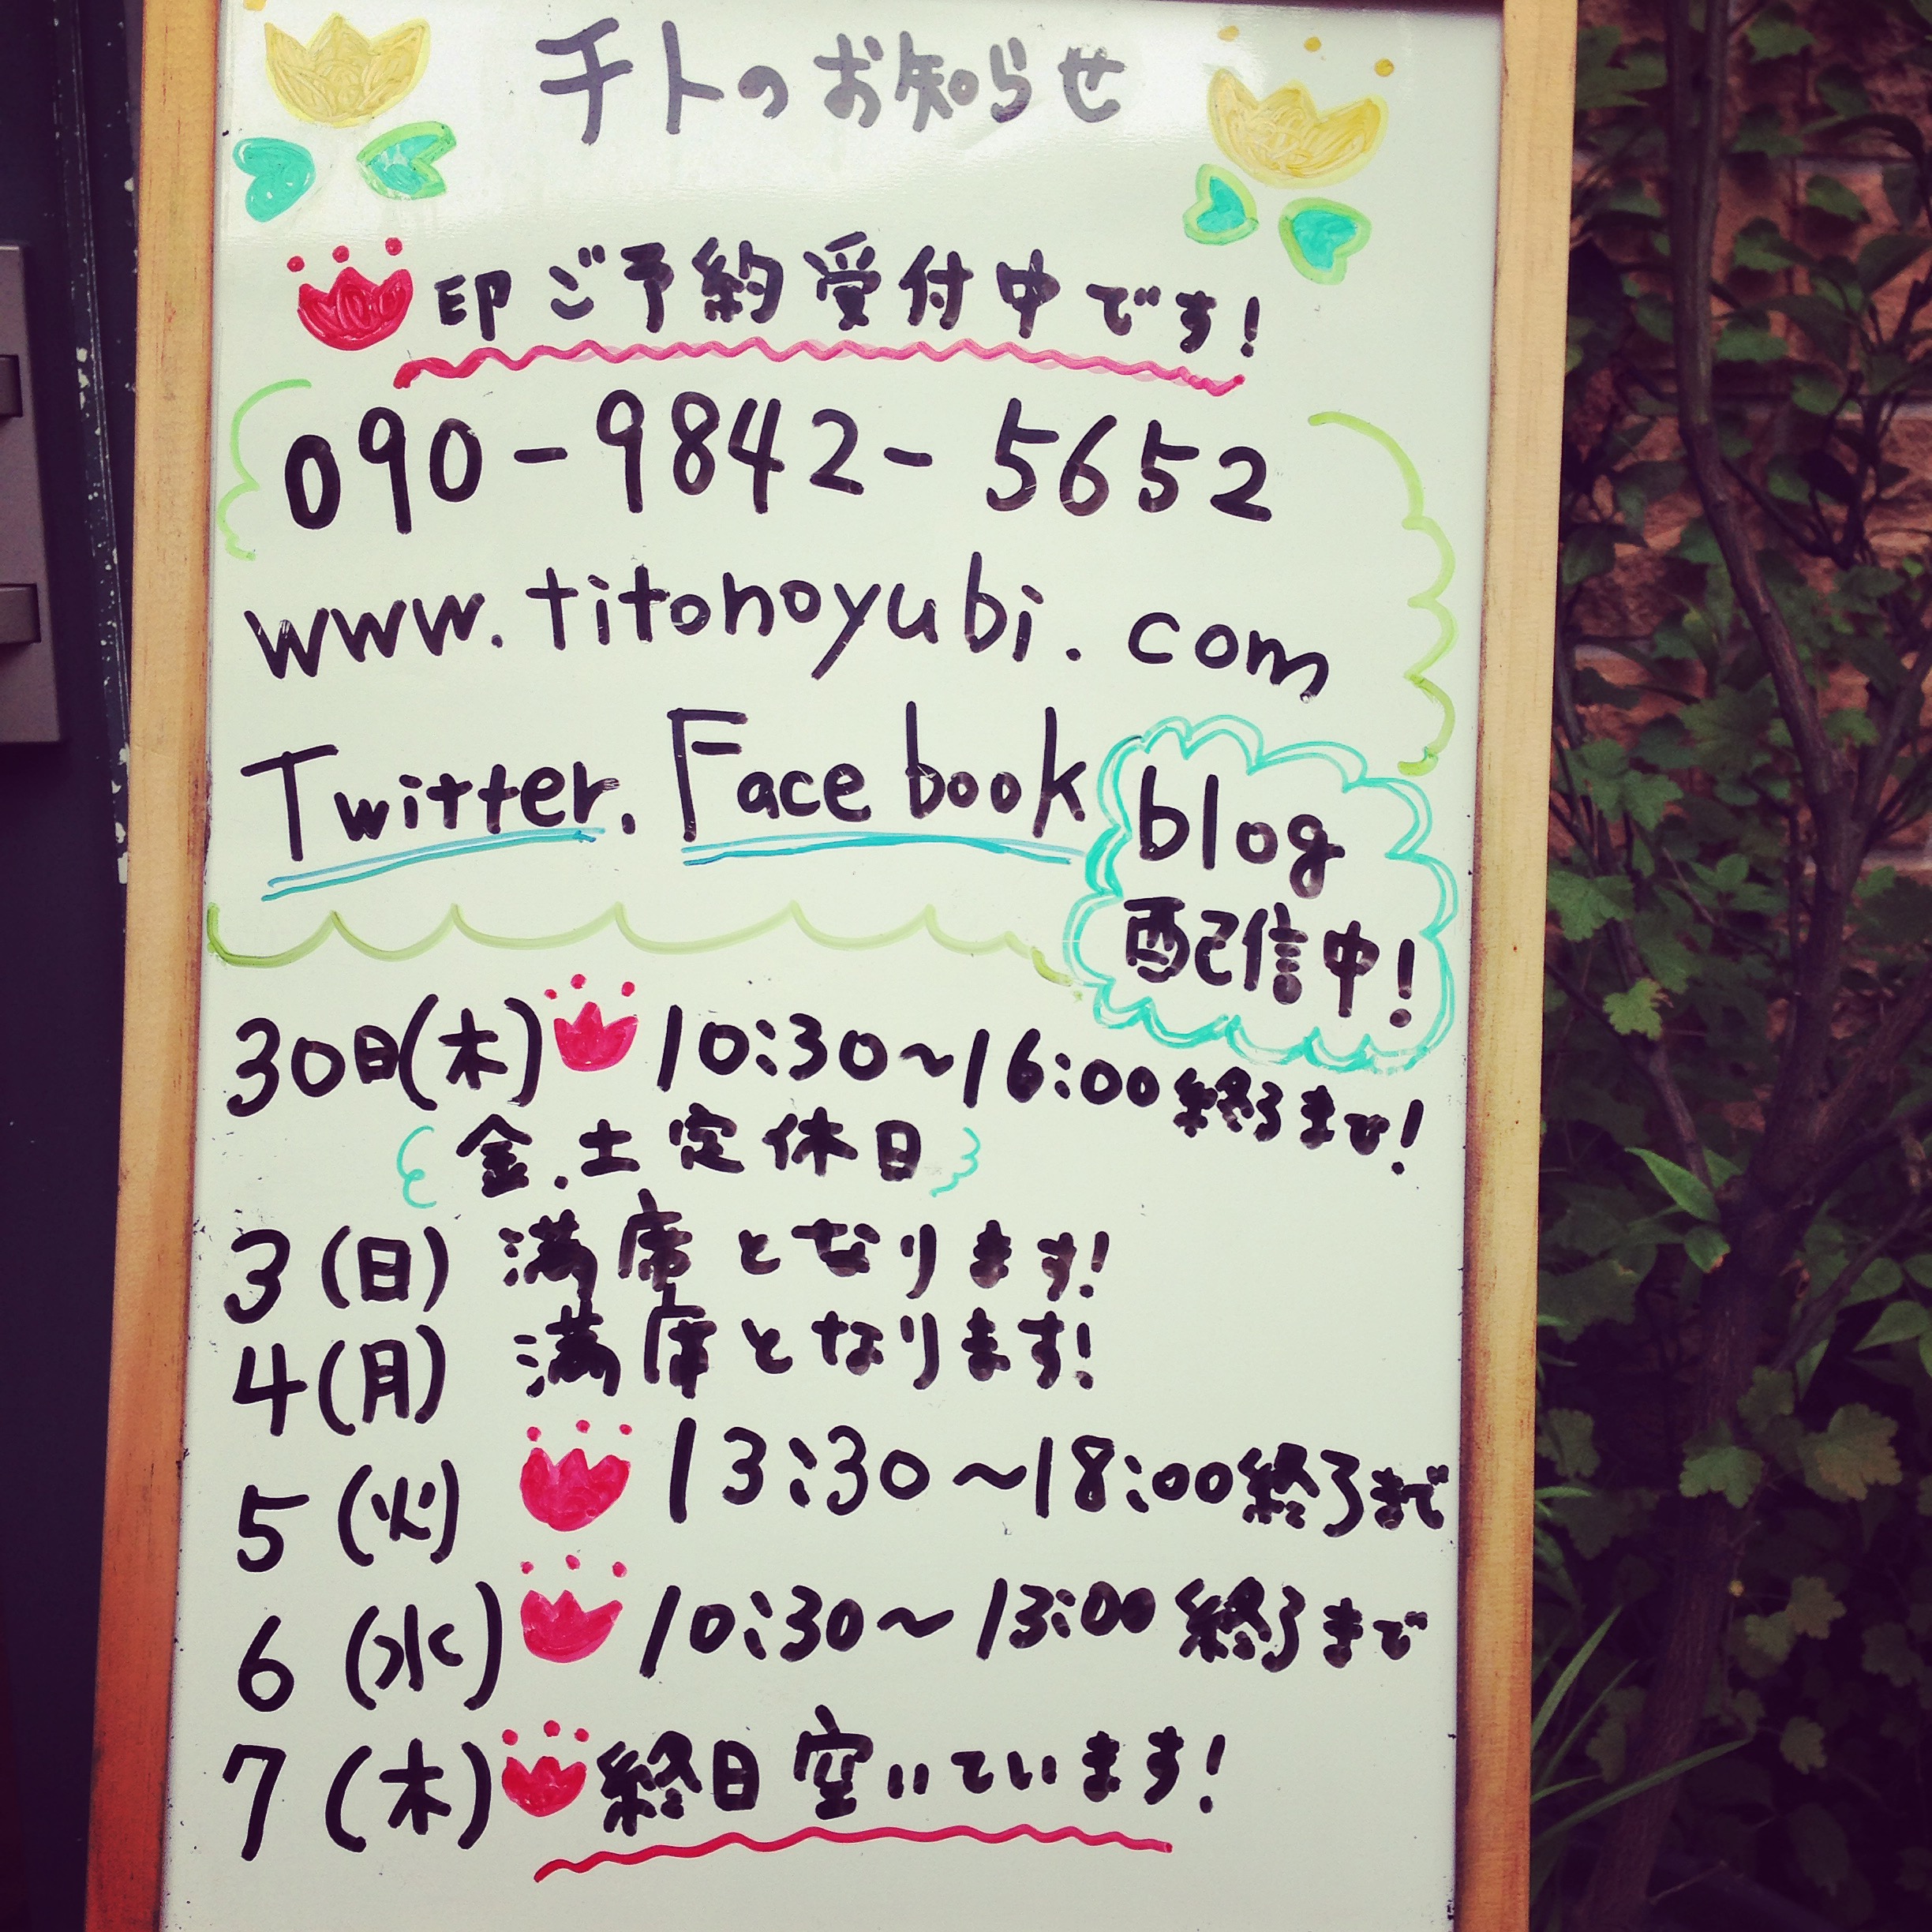 チトのお知らせ
印ご予約受付中です!
090-9842-5652
www.titonoyubi.com
Twitter. Facebook
blog
配信中!
30日(木) 10:30~16:00終了まで!
金.土定休日
3(日) 満席となります!
4(月) 満席となります!
5(火) 13:30~18:00終了まで
6(水) 10:30~13:00終了まで
7(木) 終日空いています!